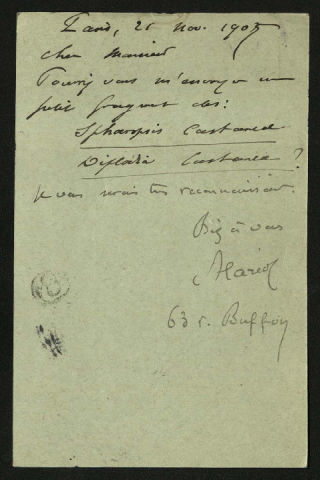 Paris, 21 Nov. 1905
Cher Monsieur
Pourriez vous m'envoyer un
petit fragment des:
Sphaeropsis Castaneae
Diplodia Castaneae ?
Je vous serais très reconnaissant.
Bien à vous
Hariot
63 r. Buffon